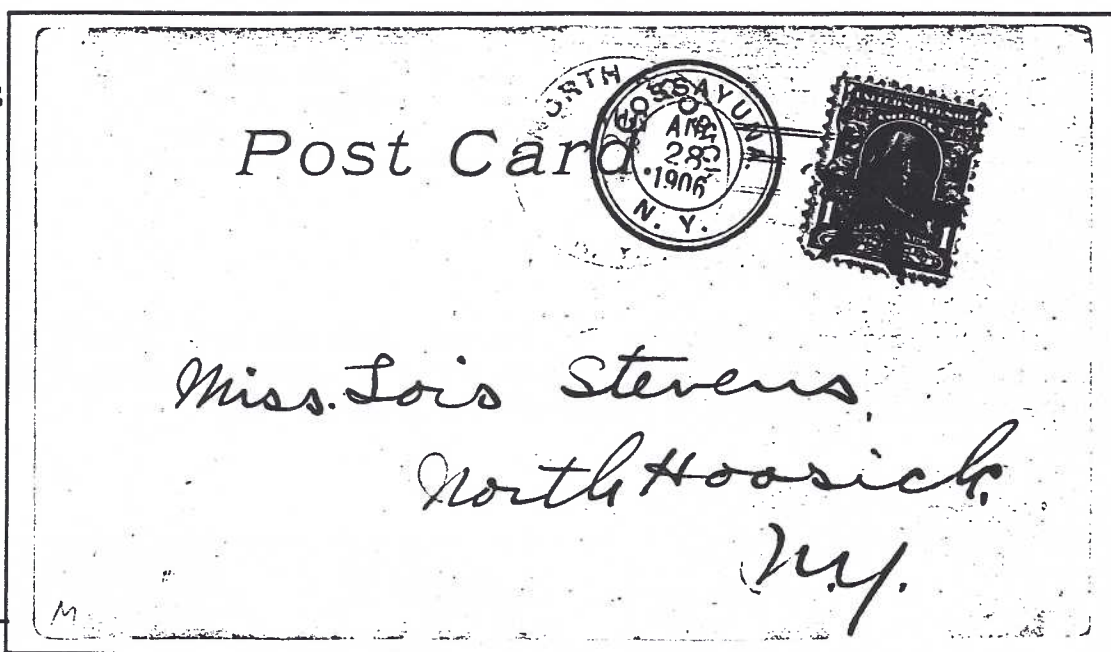 Post Card
NORTH
COSSAYUNA.
28
1906
N. Y.
1 1
Miss. Lois Stevens,
North Hoosick.
N.Y.
M